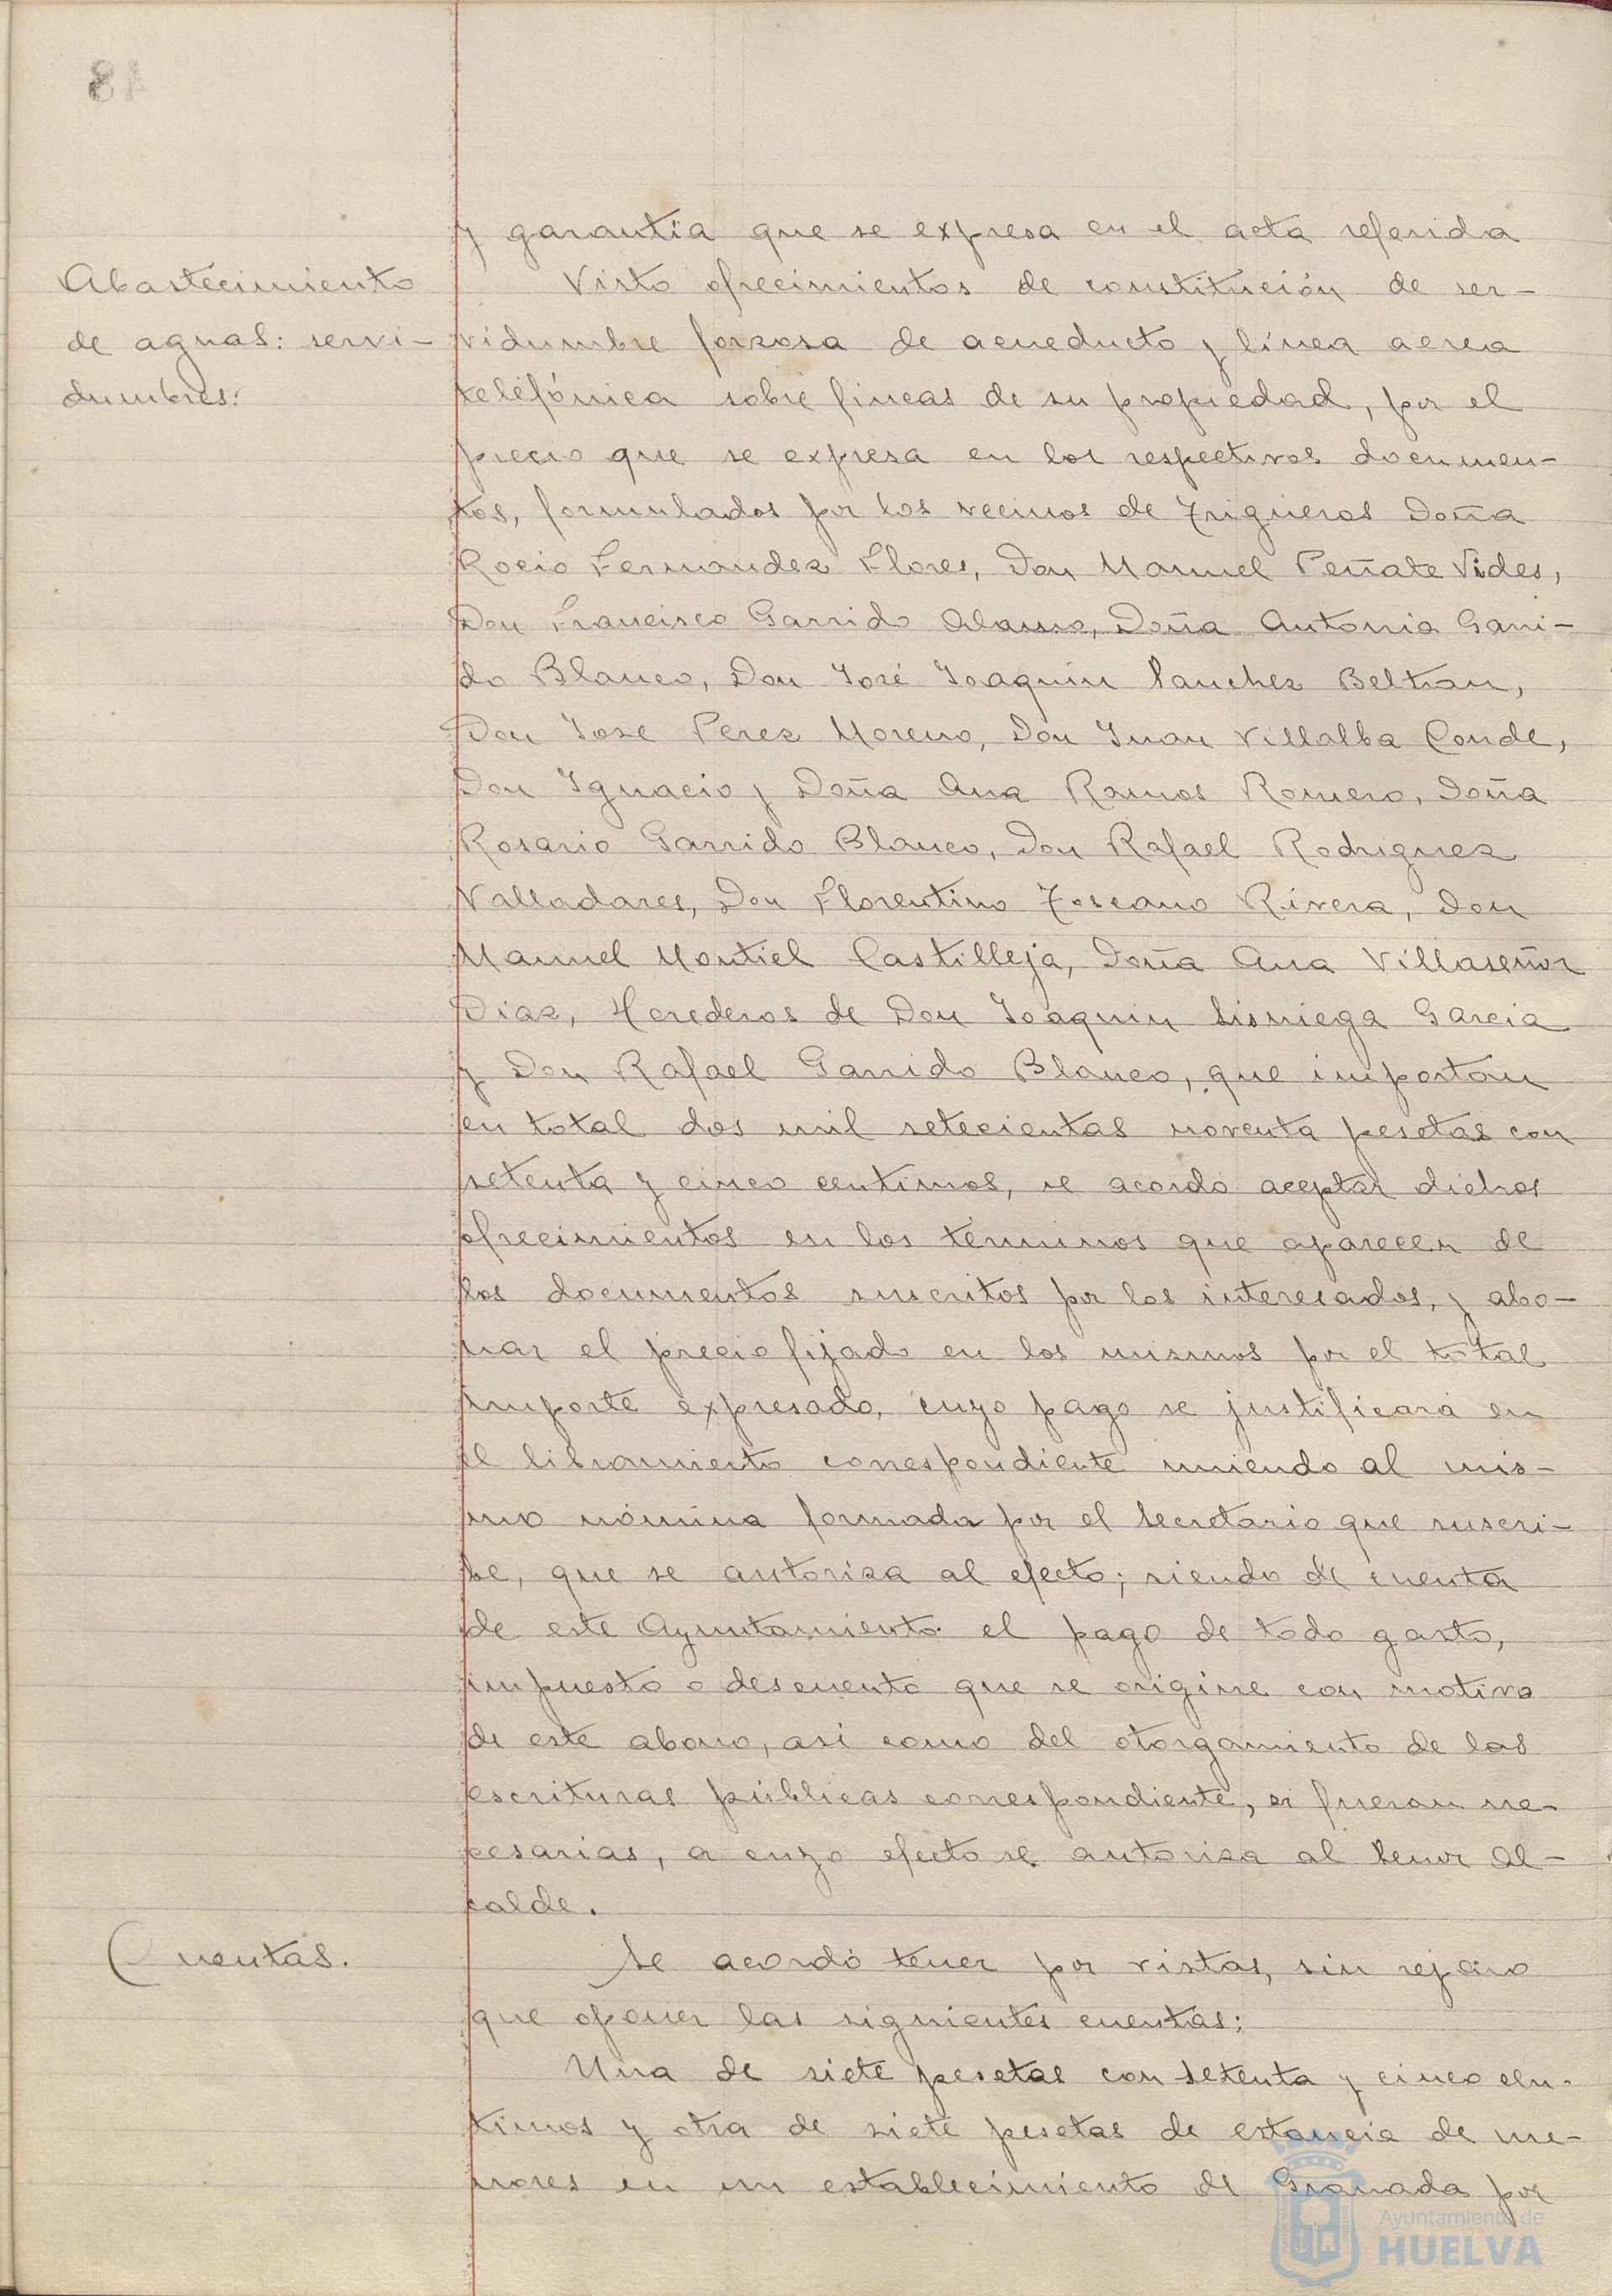 y garantía que se expresa en el acta referida
Abastecimiento
de aguas: servi-
dumbres.
Visto ofrecimientos de constitución de ser-
vidumbre forzosa de acueducto y línea aerea
telefónica sobre fincas de su propiedad, por el
precio que se expresa en los respectivos documen-
tos, formulados por los vecinos de Trigueros Doña
Rocio Fernandez Flores, Don Manuel Peñate Vides,
Don Francisco Garrido Alamo, Doña Antonia Garri-
do Blanco, Don José Joaquin Sanchez Beltran,
Don Jose Perez Moreno, Don Juan Villalba Conde,
Don Ignacio y Doña Ana Ramos Romero, Doña
Rosario Garrido Blanco, Don Rafael Rodriguez
Valladares, Don Florentino Toscano Rivera, Don
Manuel Montiel Castilleja, Doña Ana Villaseñor
Diaz, Herederos de Don Joaquin Sisniega Garcia
y Don Rafael Garrido Blanco, que importan
en total dos mil setecientas noventa pesetas con
setenta y cinco centimos, se acordó aceptar dichos
ofrecimientos en los términos que aparecen de
los documentos suscritos por los interesados, y abo-
nar el precio fijado en los mismos por el total
importe expresado, cuyo pago se justificará en
el libramiento correspondiente uniendo al mis-
mo nómina formada por el Secretario que suscri-
be, que se autoriza al efecto; siendo de cuenta
de este Ayuntamiento el pago de todo gasto,
impuesto o descuento que se origine con motivo
de este abono, asi como del otorgamiento de las
escrituras públicas correspondiente, si fueran ne-
cesarias, a cuyo efecto se autoriza al Senor Al-
calde.
Cuentas.
Se acordó tener por vistas, sin reparo
que oponer las siguientes cuentas:
Una de siete pesetas con setenta y cinco cen-
timos y otra de siete pesetas de estancia de me-
nores en un establecimiento de Granada por
Ayuntamiento de
HUELVA